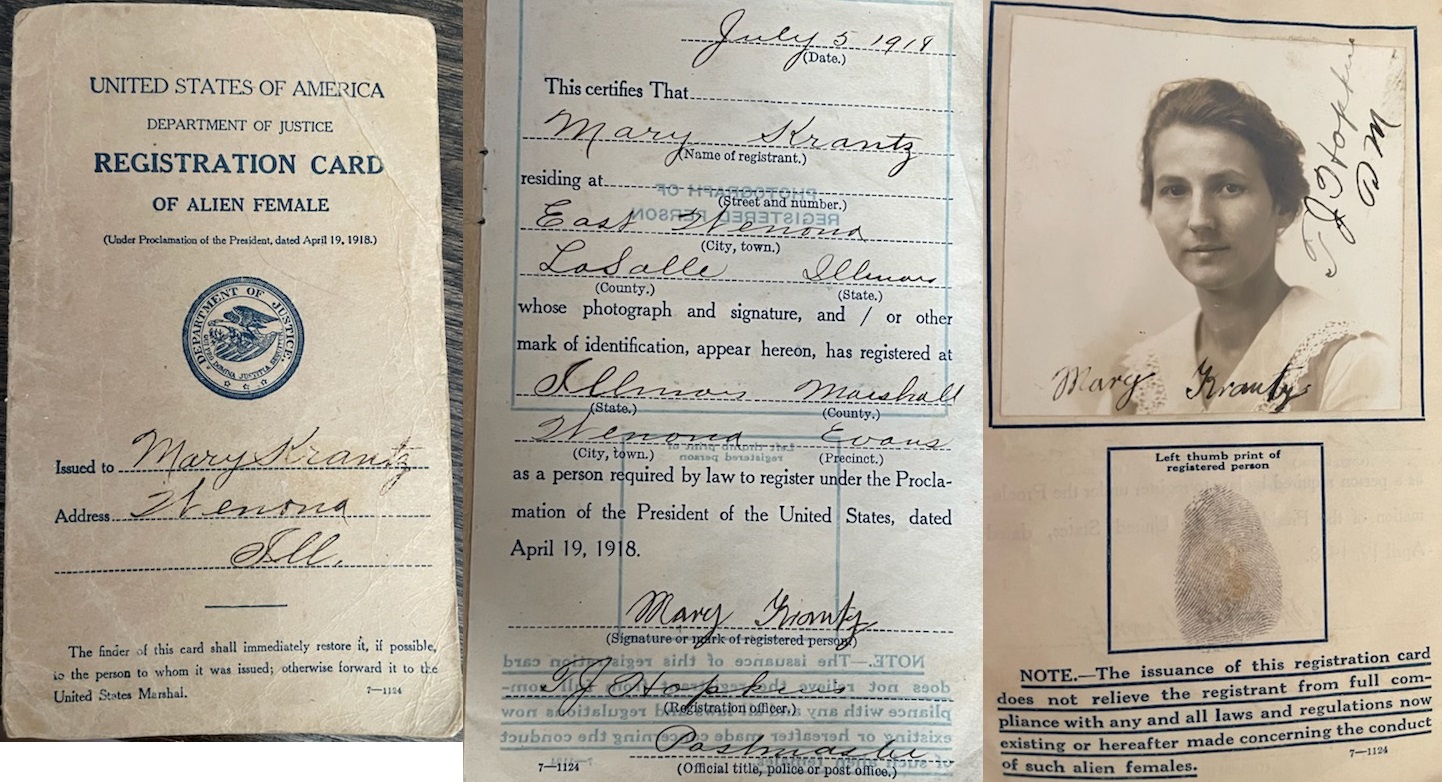 UNITED STATES OF AMERICA
DEPARTMENT OF JUSTICE
REGISTRATION CARD
OF ALIEN FEMALE
(Under Proclamation of the President, dated April 19, 1918.)
DEPARTMENT OF JUSTICE
QUI PRO DOMINA JUSTITIA SEQUITUR
Issued to Mary Krantz
Address Wenona
Ill.
The finder of this card shall immediately restore it, if possible,
to the person to whom it was issued; otherwise forward it to the
United States Marshal. 7—1124
July 5 1918
(Date.)
This certifies That
Mary Krantz
(Name of registrant.)
residing at
(Street and number.)
East Wenona
(City, town.)
LaSalle Illinois
(County.) (State.)
whose photograph and signature, and / or other
mark of identification, appear hereon, has registered at
Illinois Marshall
(State.) (County.)
Wenona Evans
(City, town.) (Precinct.)
as a person required by law to register under the Procla-
mation of the President of the United States, dated
April 19, 1918.
Mary Krantz
(Signature or mark of registered person)
T J Hopkins
(Registration officer.)
Postmaster
(Official title, police or post office.)
7—1124
T J Hopkins
P M
Mary Krantz
Left thumb print of
registered person
NOTE.—The issuance of this registration card
does not relieve the registrant from full com-
pliance with any and all laws and regulations now
existing or hereafter made concerning the conduct
of such alien females. 7—1124